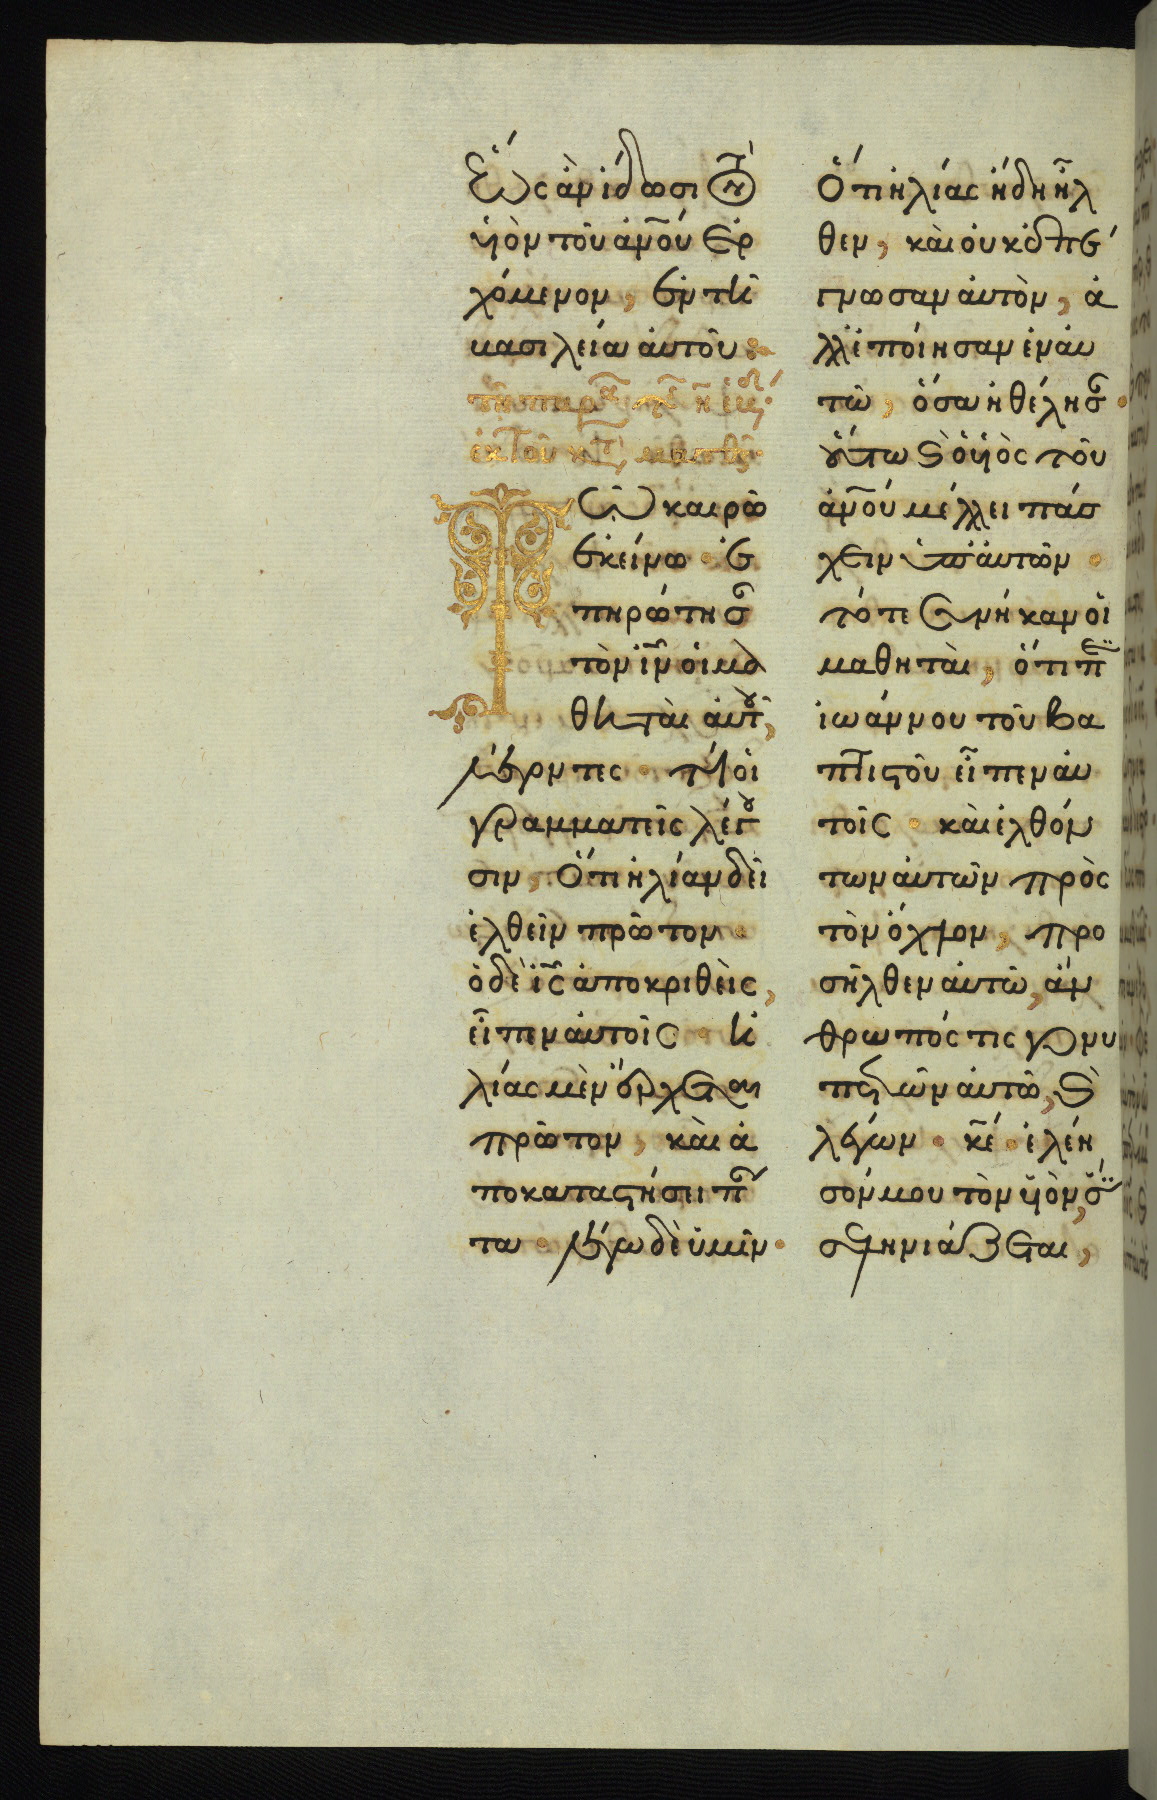 Ἕως ἂν ἴδωσι τὸν
υἱὸν τοῦ ἀν̅ου ἐρ
χόμενον, ἐν τῆ
βασιλεία αὐτοῦ:
ἐκ τοῦ κατὰ
Τῶ καιρῶ
ἐκείνω · ἐ
πηρώτησ
τὸν ιν̅ οἱ μα
θηταὶ αὐτοῦ,
λέγοντες · τί οἱ
γραμματεῖς λέγου
σιν, Ὅτι ἠλίαν δεῖ
ἐλθεῖν πρῶτον ·
ὁ δὲ ις̅ ἀποκριθεὶς,
εἶπεν αὐτοῖς · ἠ
λίας μὲν ἔρχεται
πρῶτον, καὶ ἀ
ποκαταστήσει πάν
τα · λέγω δὲ ὑμῖν ·
Ὅτι ἠλίας ἤδη ἦλ
θεν, καὶ οὐκ ἐπέ
γνωσαν αὐτὸν, ἀ
λλ' ἐποίησαν ἐν αὐ
τῶ, ὅσα ἠθέλησαν ·
οὕτω καὶ ὁ υἱὸς τοῦ
ἀν̅ου μέλλει πάσ
χειν ὑπ' αὐτῶν ·
τότε συνῆκαν οἱ
μαθηταὶ, ὅτι περὶ
ἰωάννου τοῦ βα
πτιστοῦ εἶπεν αὐ
τοῖς · καὶ ἐλθόν
των αὐτῶν πρὸς
τὸν ὄχλον, προ
σῆλθεν αὐτῶ, ἄν
θρωπός τις γονυ
πετῶν αὐτῶ, καὶ
λέγων · κε̅ · ἐλέη
σόν μου τὸν υἱὸν, ὅτι
σεληνιάζεται,